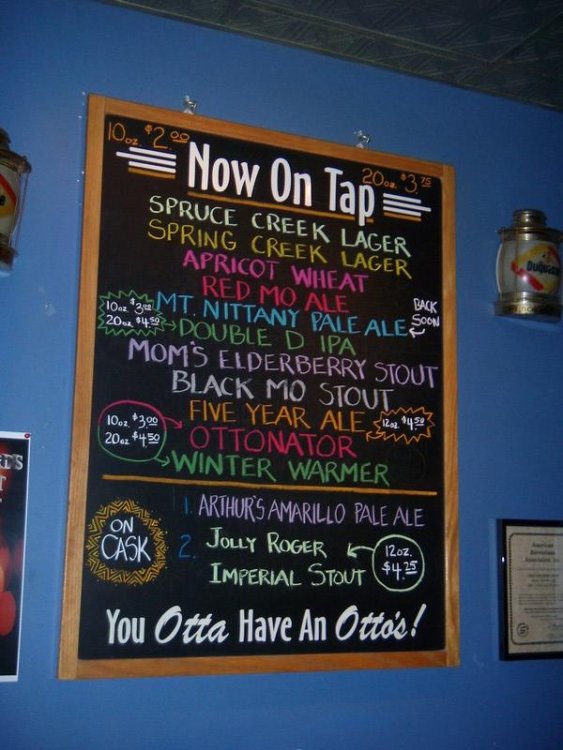 10 oz. $2.00
20 oz. $3.75
Now On Tap
SPRUCE CREEK LAGER
SPRING CREEK LAGER
APRICOT WHEAT
RED MO ALE
10 oz. $3.00
20 oz. $4.50
MT. NITTANY PALE ALE
BACK SOON
DOUBLE D IPA
MOM'S ELDERBERRY STOUT
BLACK MO STOUT
FIVE YEAR ALE
12 oz. $4.50
10 oz. $3.00
20 oz. $4.50
OTTONATOR
WINTER WARMER
ON CASK
1. ARTHUR'S AMARILLO PALE ALE
2. JOLLY ROGER
IMPERIAL STOUT
12 oz.
$4.25
You Otta Have An Otto's!
Duquesne